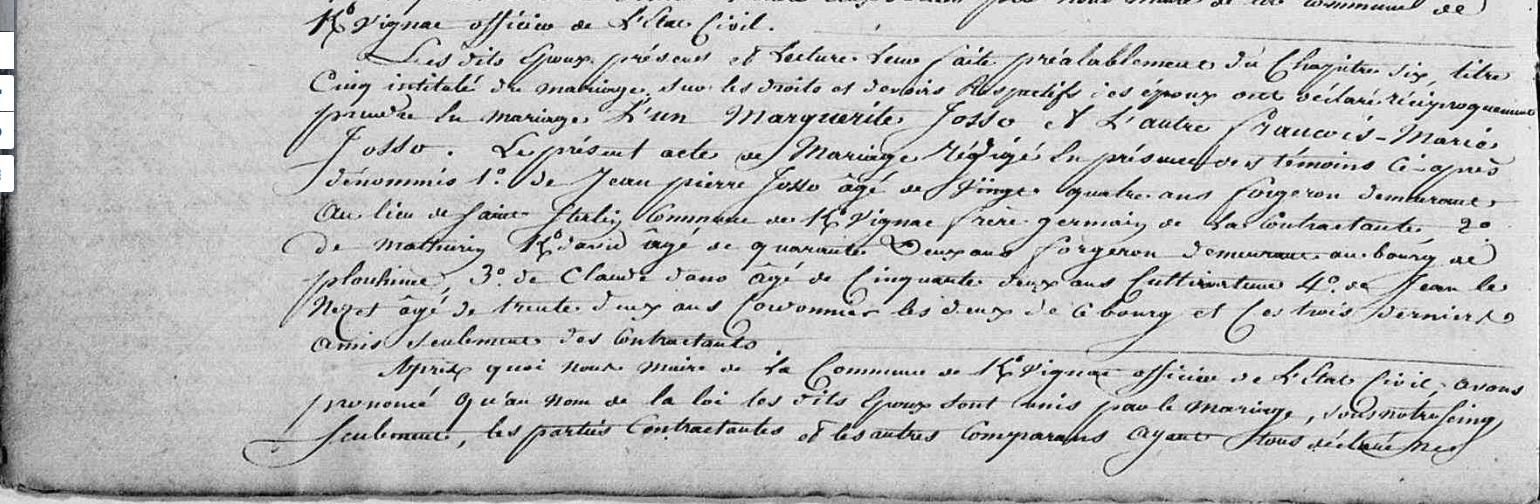 par nous maire de la commune de
K/vignac officier de L'Etat Civil.
Les dits Epoux présens et Lecture Leur faite préalablement du Chapitre six, titre
Cinq intitulé du mariage, sur les droits et devoirs Respectifs des époux ont déclaré réciproquement
prendre En mariage L'un Marguerite Josso et L'autre francois-Marie
Josso. Le présent acte de Mariage Rédigé En présence des témoins Ci-après
dénommés 1º. de Jean pierre Josso âgé de Vingt quatre ans forgeron demeurant
au lieu de Saint Sterlin Commune de K/vignac frère germain de La Contractante 2º
de mathurin K/david âgé de quarante Deux ans forgeron demeurant au bourg de
plouhinec, 3º. de Claude dano âgé de Cinquante deux ans Cultivateur 4º. de Jean le
Nezet âgé de trente deux ans Cordonnier les deux de ce bourg et Ces trois derniers
amis seulement des Contractants
Après quoi nous maire de La Commune de K/vignac officier de L'Etat Civil avons
prononcé qu'au nom de la loi les dits Epoux sont unis par le mariage, sous notre seing
seulement, les parties Contractantes et les autres Comparans ayant tous déclaré ne